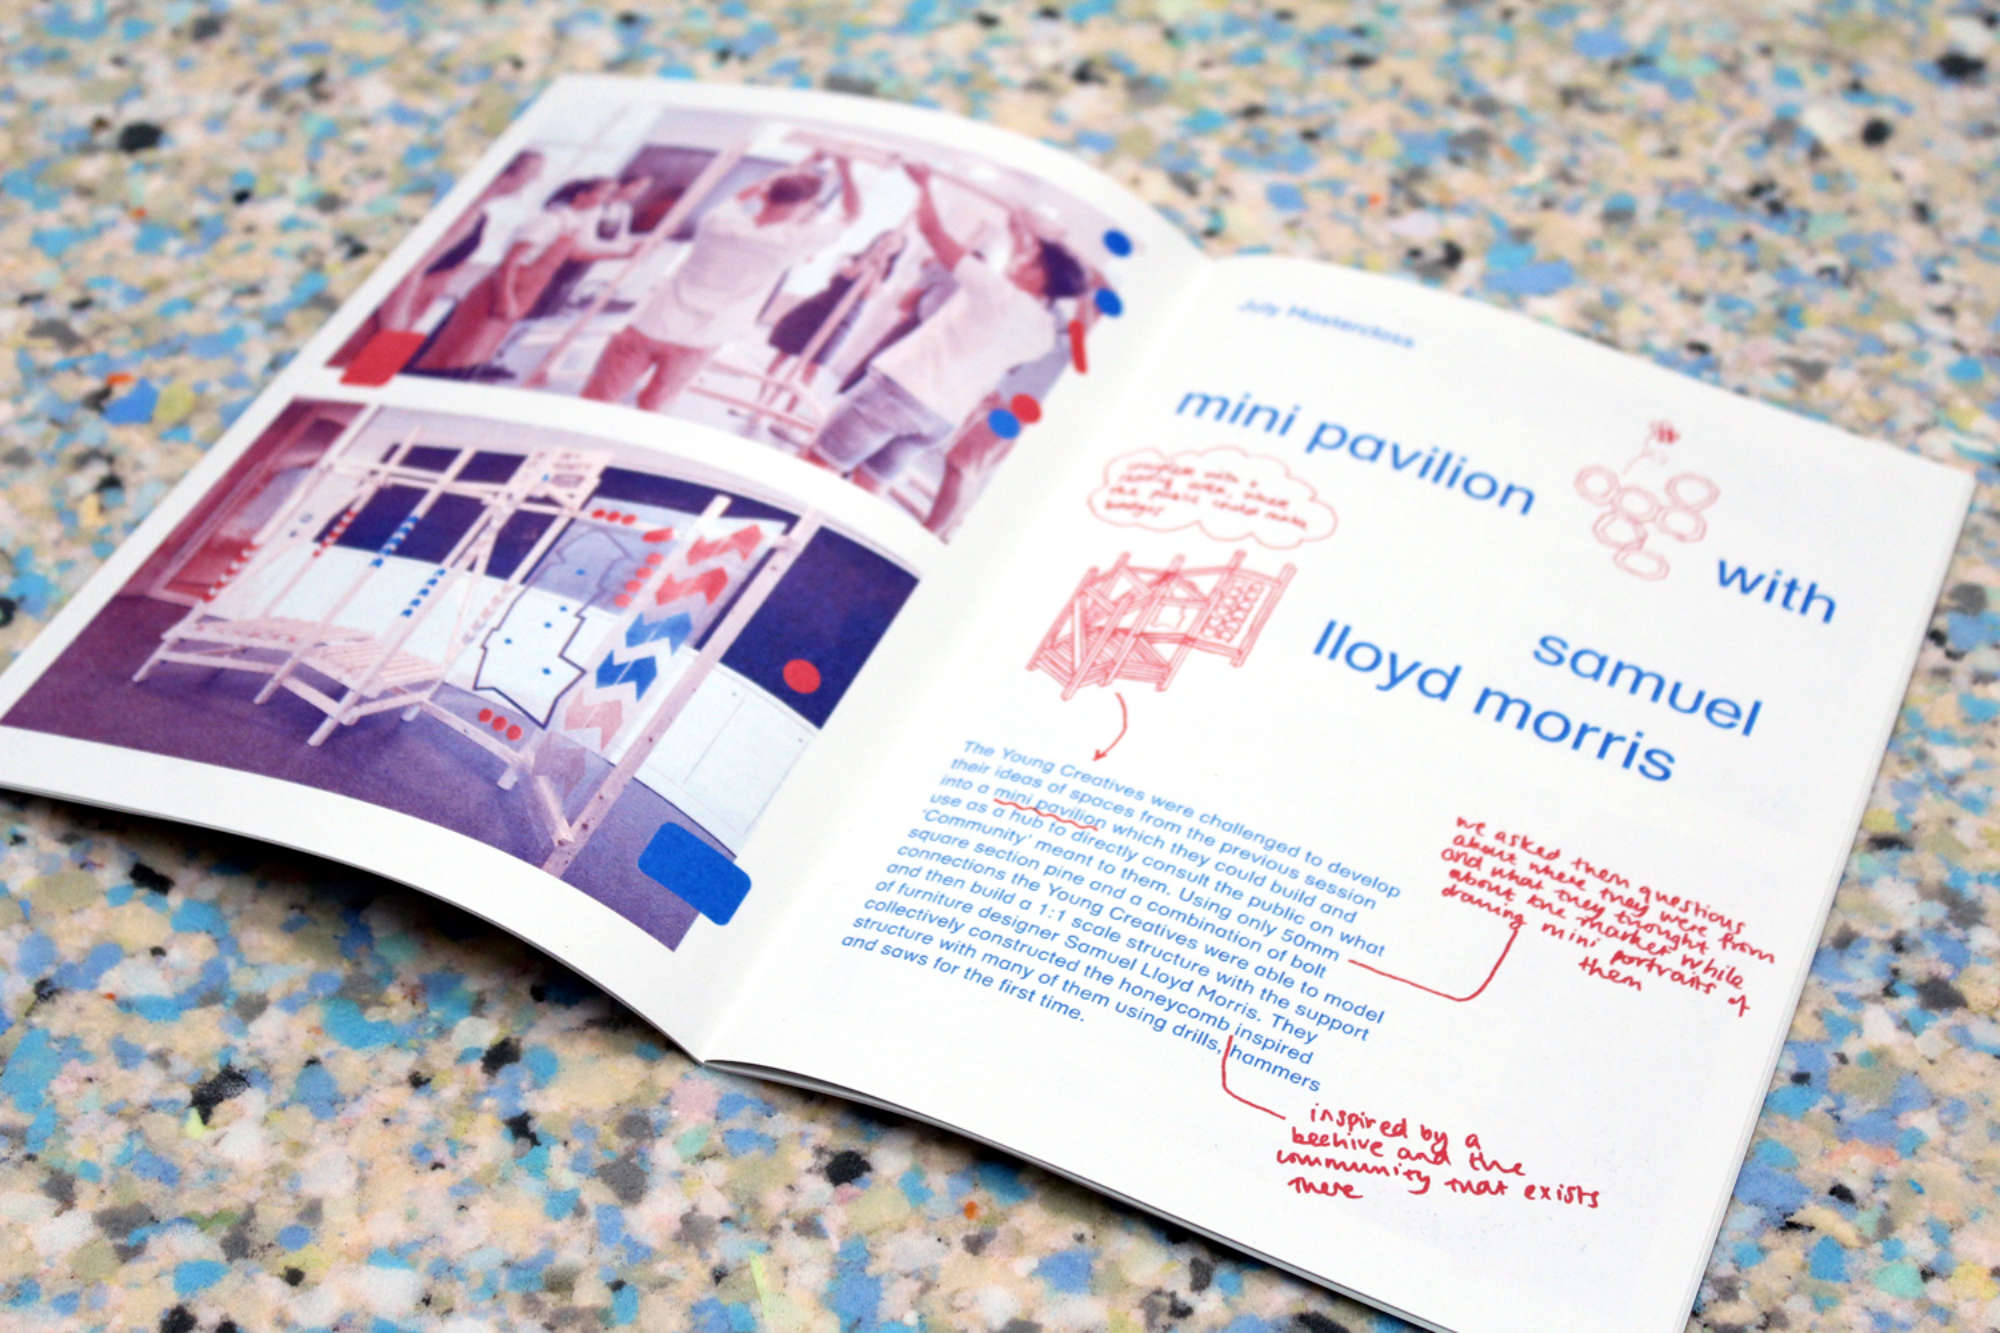 July Masterclass
mini pavilion
with
samuel
lloyd morris
where
the public could make
badges
The Young Creatives were challenged to develop
their ideas of spaces from the previous session
into a mini pavilion which they could build and
use as a hub to directly consult the public on what
‘Community’ meant to them. Using only 50mm
square section pine and a combination of bolt
connections the Young Creatives were able to model
and then build a 1:1 scale structure with the support
of furniture designer Samuel Lloyd Morris. They
collectively constructed the honeycomb inspired
structure with many of them using drills, hammers
and saws for the first time.
we asked them questions
about where they were from
and what they thought
about the market while
drawing mini portraits of
them
inspired by a
beehive and the
community that exists
there